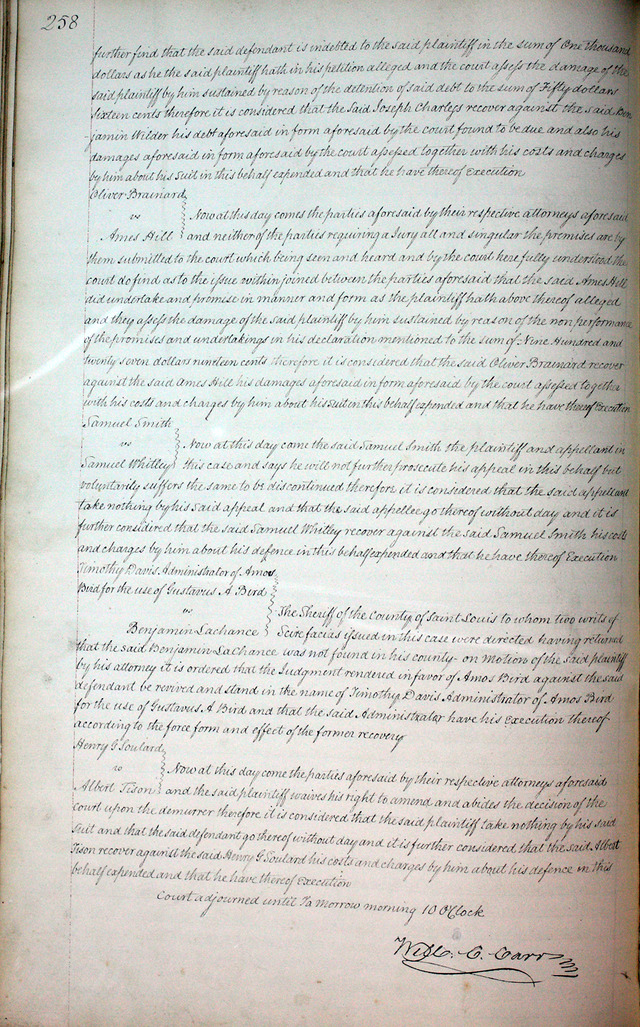 258
further find that the said defendant is indebted to the said plaintiff in the sum of One thousand
dollars as he the said plaintiff hath in his petition alleged and the court assess the damage of the
said plaintiff by him sustained by reason of the detention of said debt to the sum of Fifty dollars
Sixteen cents therefore it is considered that the Said Joseph Charless recover against the said Ben
jamin Wilder his debt aforesaid in form aforesaid by the court found to be due and also his
damages aforesaid in form aforesaid by the court assessed together with his costs and charges
by him about his Suit in this behalf expended and that he have thereof Execution
Oliver Brainard
vs Now at this day comes the parties aforesaid by their respective attorneys aforesaid
Ames Hill and neither of the parties requiring a Jury all and singular the premises are by
them submitted to the court which being seen and heard and by the court here fully understood the
court do find as to the issue within joined between the parties aforesaid that the said Ames Hill
did undertake and promise in manner and form as the plaintiff hath above thereof alleged
and they assess the damage of the said plaintiff by him sustained by reason of the non performance
of the promises and undertakings in his declaration mentioned to the sum of Nine Hundred and
twenty seven dollars nineteen cents therefore it is considered that the said Oliver Brainard recover
against the said Ames Hill his damages aforesaid in form aforesaid by the court assessed together
with his costs and charges by him about his suit in this behalf expended and that he have thereof Execution
Samuel Smith
vs Now at this day come the said Samuel Smith the plaintiff and appellant in
Samuel Whitley this case and says he will not further prosecute his appeal in this behalf but
voluntarily suffers the same to be discontinued therefore it is considered that the said appellant
take nothing by his Said appeal and that the said appellee go thereof without day and it is
further considered that the said Samuel Whitley recover against the said Samuel Smith his costs
and charges by him about his defence in this behalf expended and that he have thereof Execution
Timothy Davis Administrator of Amos
Bird for the use of Gustavus A Bird
vs The Sheriff of the County of Saint Louis to whom two writs of
Benjamin Lachance Scire facias issued in this case were directed having returned
that the said Benjamin LaChance was not found in his county - on Motion of the Said plaintiff
by his attorney it is ordered that the Judgment rendered in favor of Amos Bird against the said
defendant be revived and stand in the name of Timothy Davis Administrator of Amos Bird
for the use of Gustavus A Bird and that the said Administrator have his Execution thereof
according to the force form and effect of the former recovery
Henry G Soulard
vs Now at this day come the parties aforesaid by their respective attorneys aforesaid
Albert Tison and the said plaintiff waives his right to amend and abides the decision of the
court upon the demurrer therefore it is considered that the said plaintiff take nothing by his said
Suit and that the said defendant go thereof without day and it is further considered that the said Albert
Tison recover against the said Henry G Soulard his costs and charges by him about his defence in this
behalf expended and that he have thereof Execution
Court adjourned until To morrow morning 10 O'Clock
Will. C. Carr